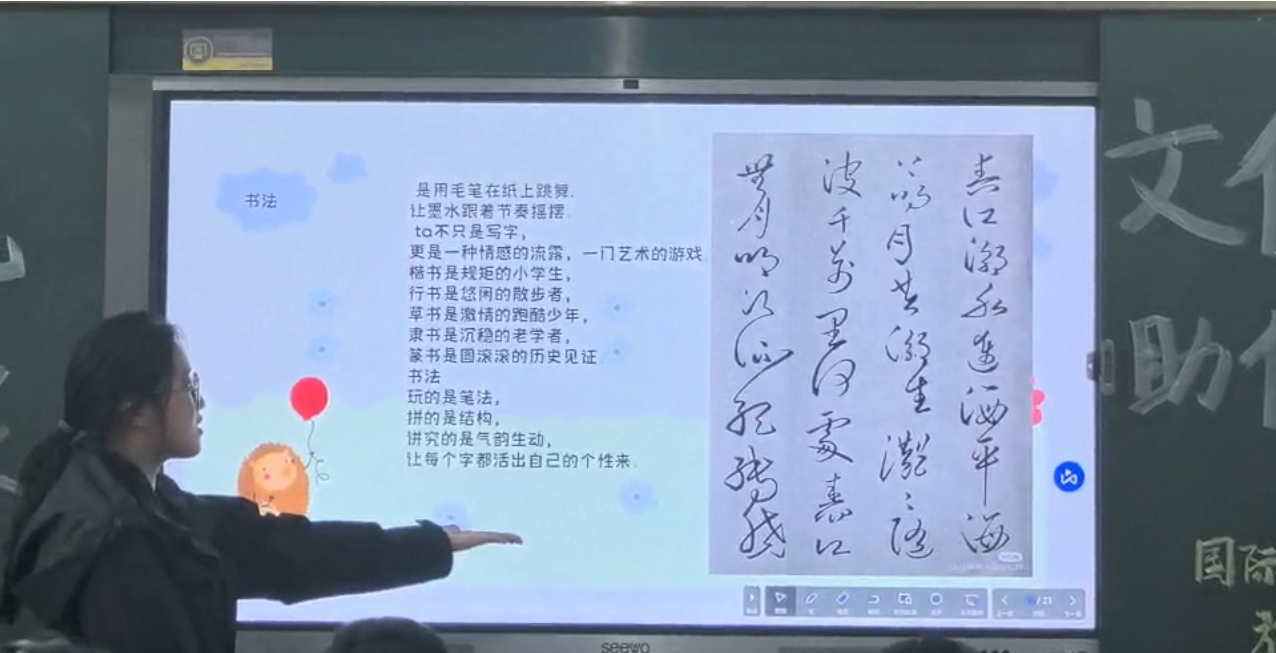 书法
是用毛笔在纸上跳舞.
让墨水跟着节奏摇摆.
ta不只是写字，
更是一种情感的流露，一门艺术的游戏.
楷书是规矩的小学生，
行书是悠闲的散步者，
草书是激情的跑酷少年，
隶书是沉稳的老学者，
篆书是圆滚滚的历史见证.
书法
玩的是笔法，
拼的是结构，
讲究的是气韵生动，
让每个字都活出自己的个性来.
春江潮水連海平海
上明月共潮生灩〻隨
波千萬里何處春江
無月明江流宛轉繞
/21
seewo
文
助
国际